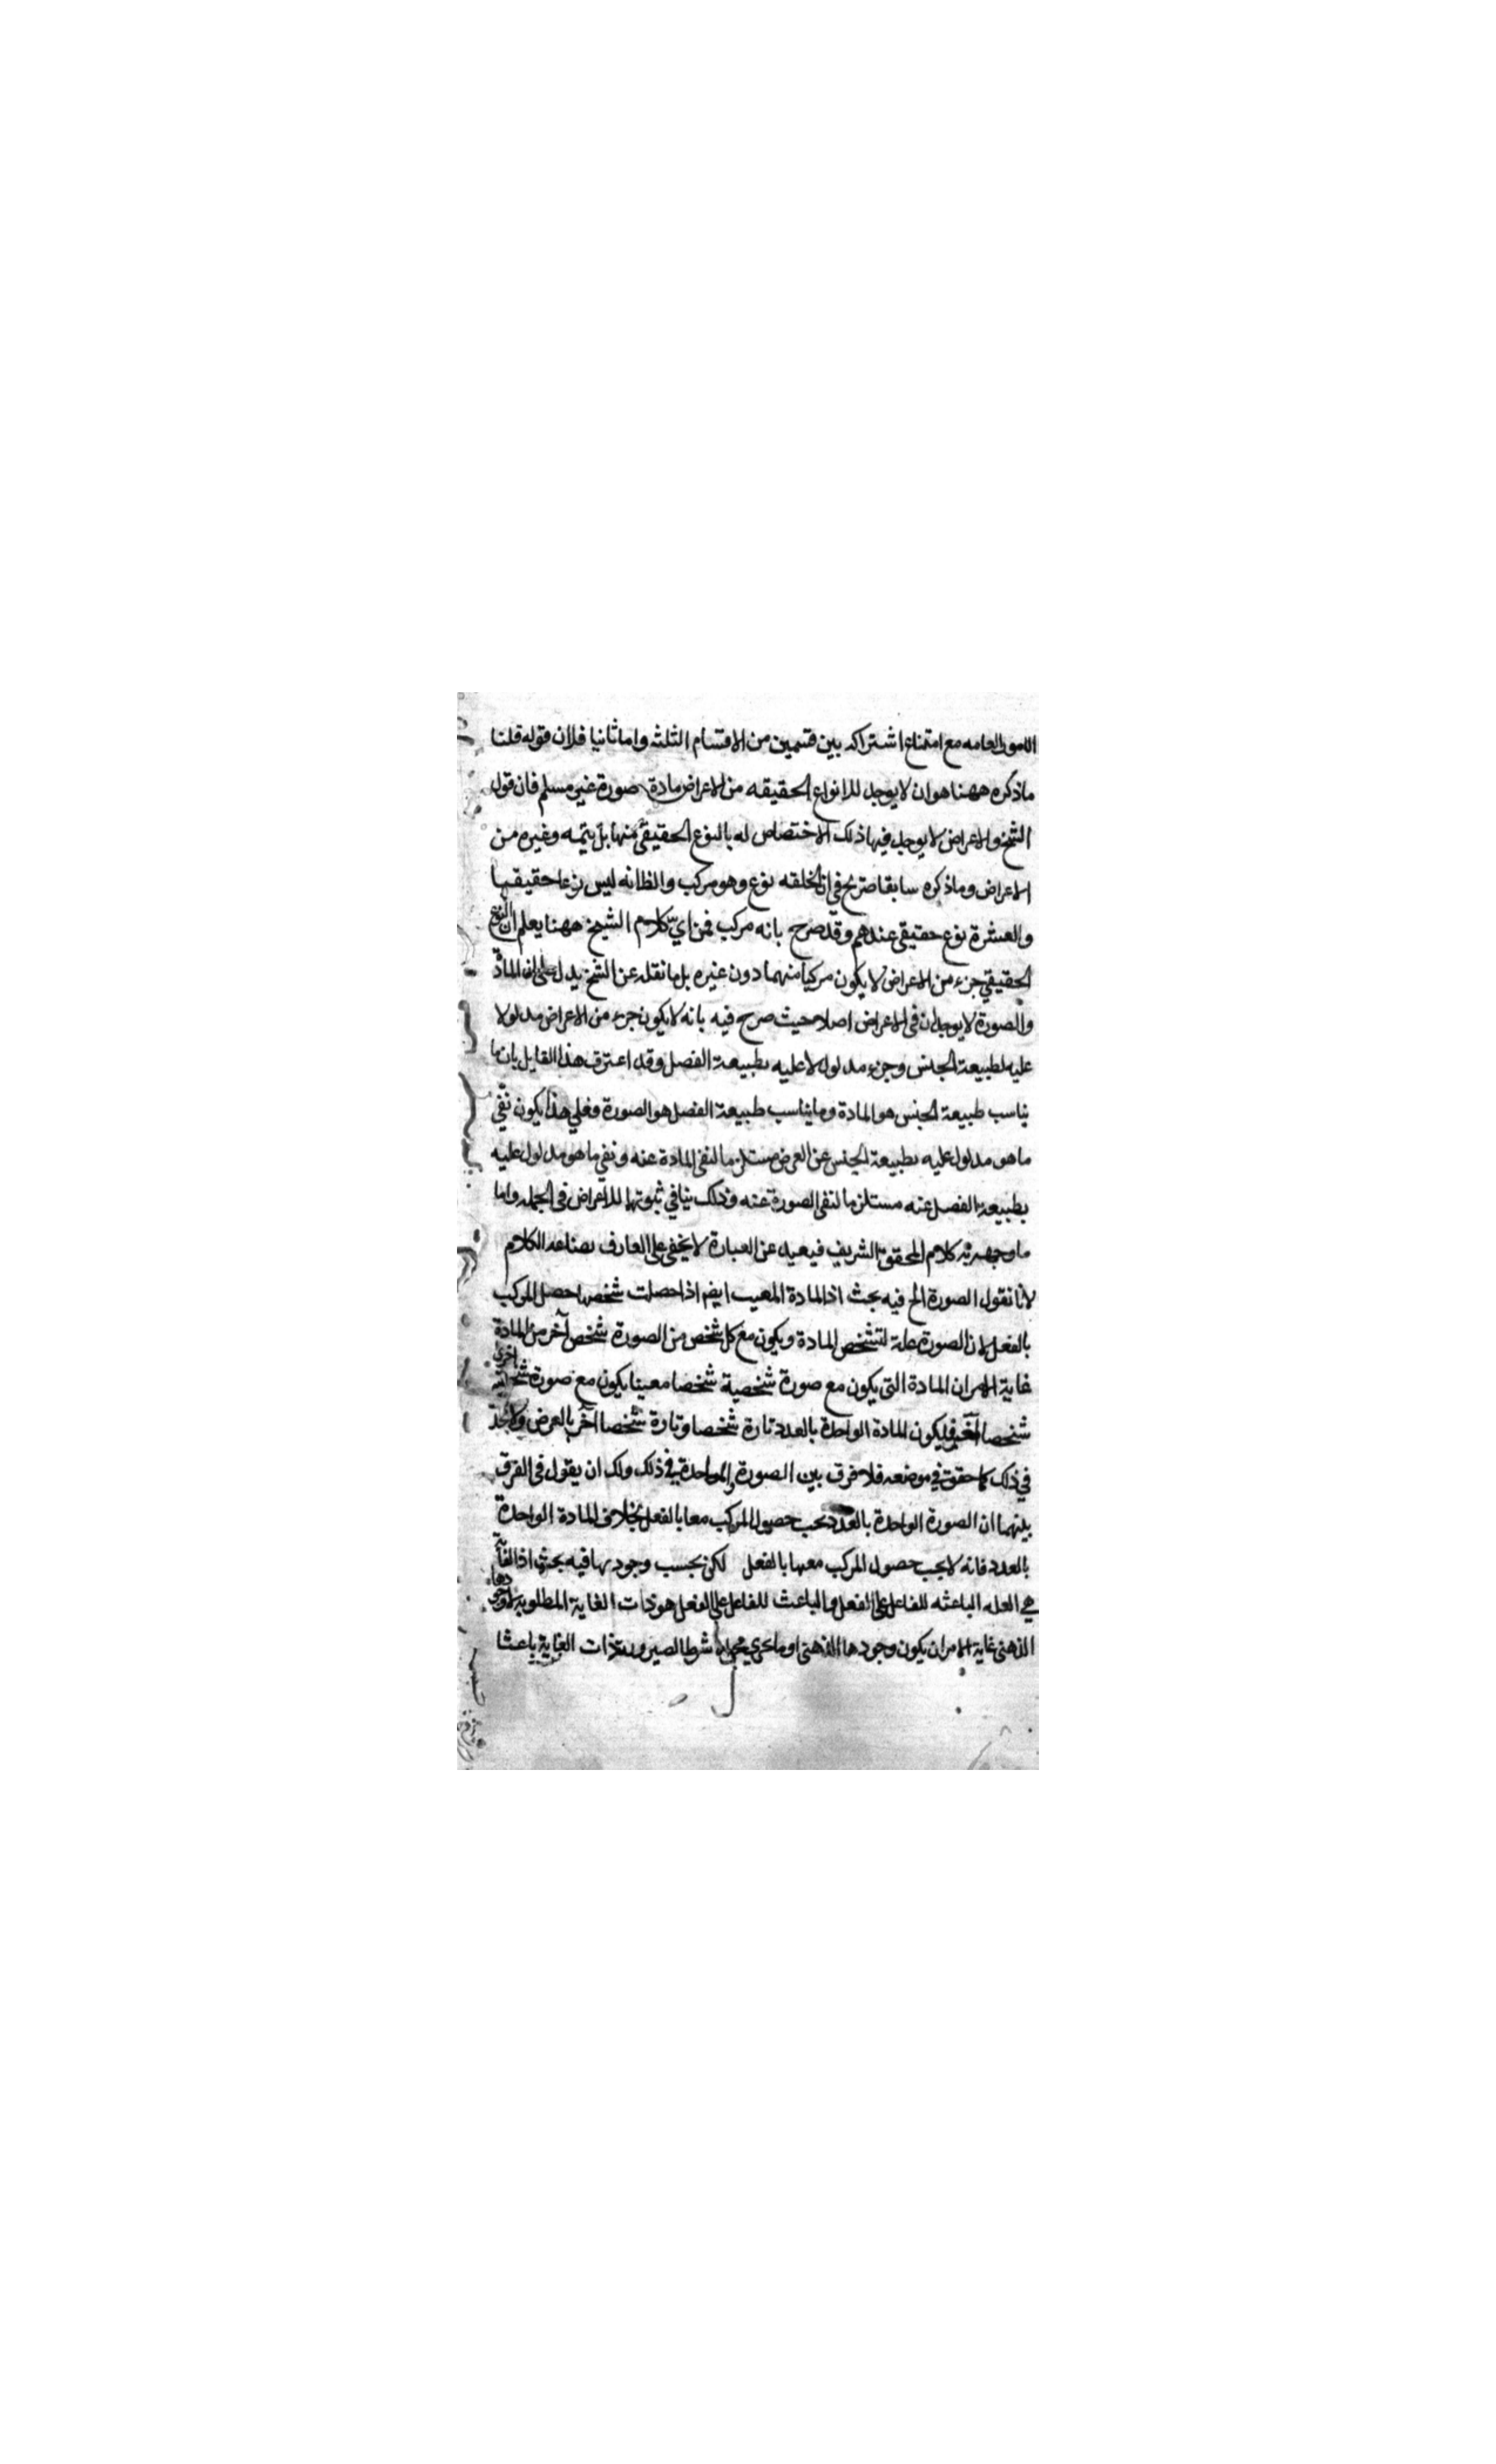 الامور العامه مع امتناع اشتراكه بين قسمين من الاقسام الثلثه واما ثانيا فلان قوله قلنا
ما ذكره ههنا هو ان لا يوجد للانواع الحقيقه من الاعراض مادة وصورة غير مسلم فان قول
الشيخ والاعراض لا يوجد فيها ذلك الاختصاص له بالنوع الحقيقي منها بل يتمه وغيره من
الاعراض وما ذكره سابقا صريح في ان الخلقه نوع وهو مركب والظ انه ليس نوعا حقيقيا
والعشرة نوع حقيقي عندهم وقد صرح بانه مركب فمن اي كلام الشيخ ههنا يعلم ان النوع
الحقيقي جزء من الاعراض لا يكون مركبا منهما دون غيره بل ما نقله عن الشيخ يدل على ان المادة
والصورة لا يوجدان في الاعراض اصلا حيث صرح فيه بانه لا يكون جزء من الاعراض مدلولا
عليه بطبيعة الجنس وجزء مدلولا عليه بطبيعة الفصل وقد اعترف هذا القايل بان ما
يناسب طبيعة الجنس هو المادة وما يناسب طبيعة الفصل هو الصورة وعلى هذا يكون نفي
ما هو مدلول عليه بطبيعة الجنس عن العرض مستلزما لنفي المادة عنه ونفي ما هو مدلول عليه
بطبيعة الفصل عنه مستلزما لنفي الصورة عنه وذلك ينافي ثبوتها للاعراض في الجمله واما
ما وجه به كلام المحقق الشريف فبعيد عن العبارة لا يخفى على العارف بصناعه الكلام
لانا نقول الصورة الخ فيه بحث اذ المادة المعينه ايضا اذا حصلت شخصها حصل المركب
بالفعل لان الصورة علة لتشخص المادة ويكون مع كل شخص من الصورة شخص آخر من المادة
غاية الامر ان المادة التي يكون مع صورة شخصية شخصا معينا يكون مع صورة شخصية اخرى
شخصا آخر فيكون المادة الواحدة بالعدد تارة شخصا وتارة شخصا آخر بالعرض ولا
في ذلك كما حقق في موضعه فلا فرق بين الصورة والمادة في ذلك ولك ان يقول في الفرق
بينهما ان الصورة الواحدة بالعدد يجب حصول المركب معها بالفعل بخلاف المادة الواحدة
بالعدد فانه لا يجب حصول المركب معها بالفعل لكن بحسب وجودها فيه بحث اذ الغاية
هي العله الباعثه للفاعل على الفعل والباعث للفاعل على الفعل هو ذات الغاية المطلوبة لا وجودها
الذهني غاية الامر ان يكون وجودها الذهني او ما يجري مجراه شرطا لصيرورة ذات الغاية باعثا